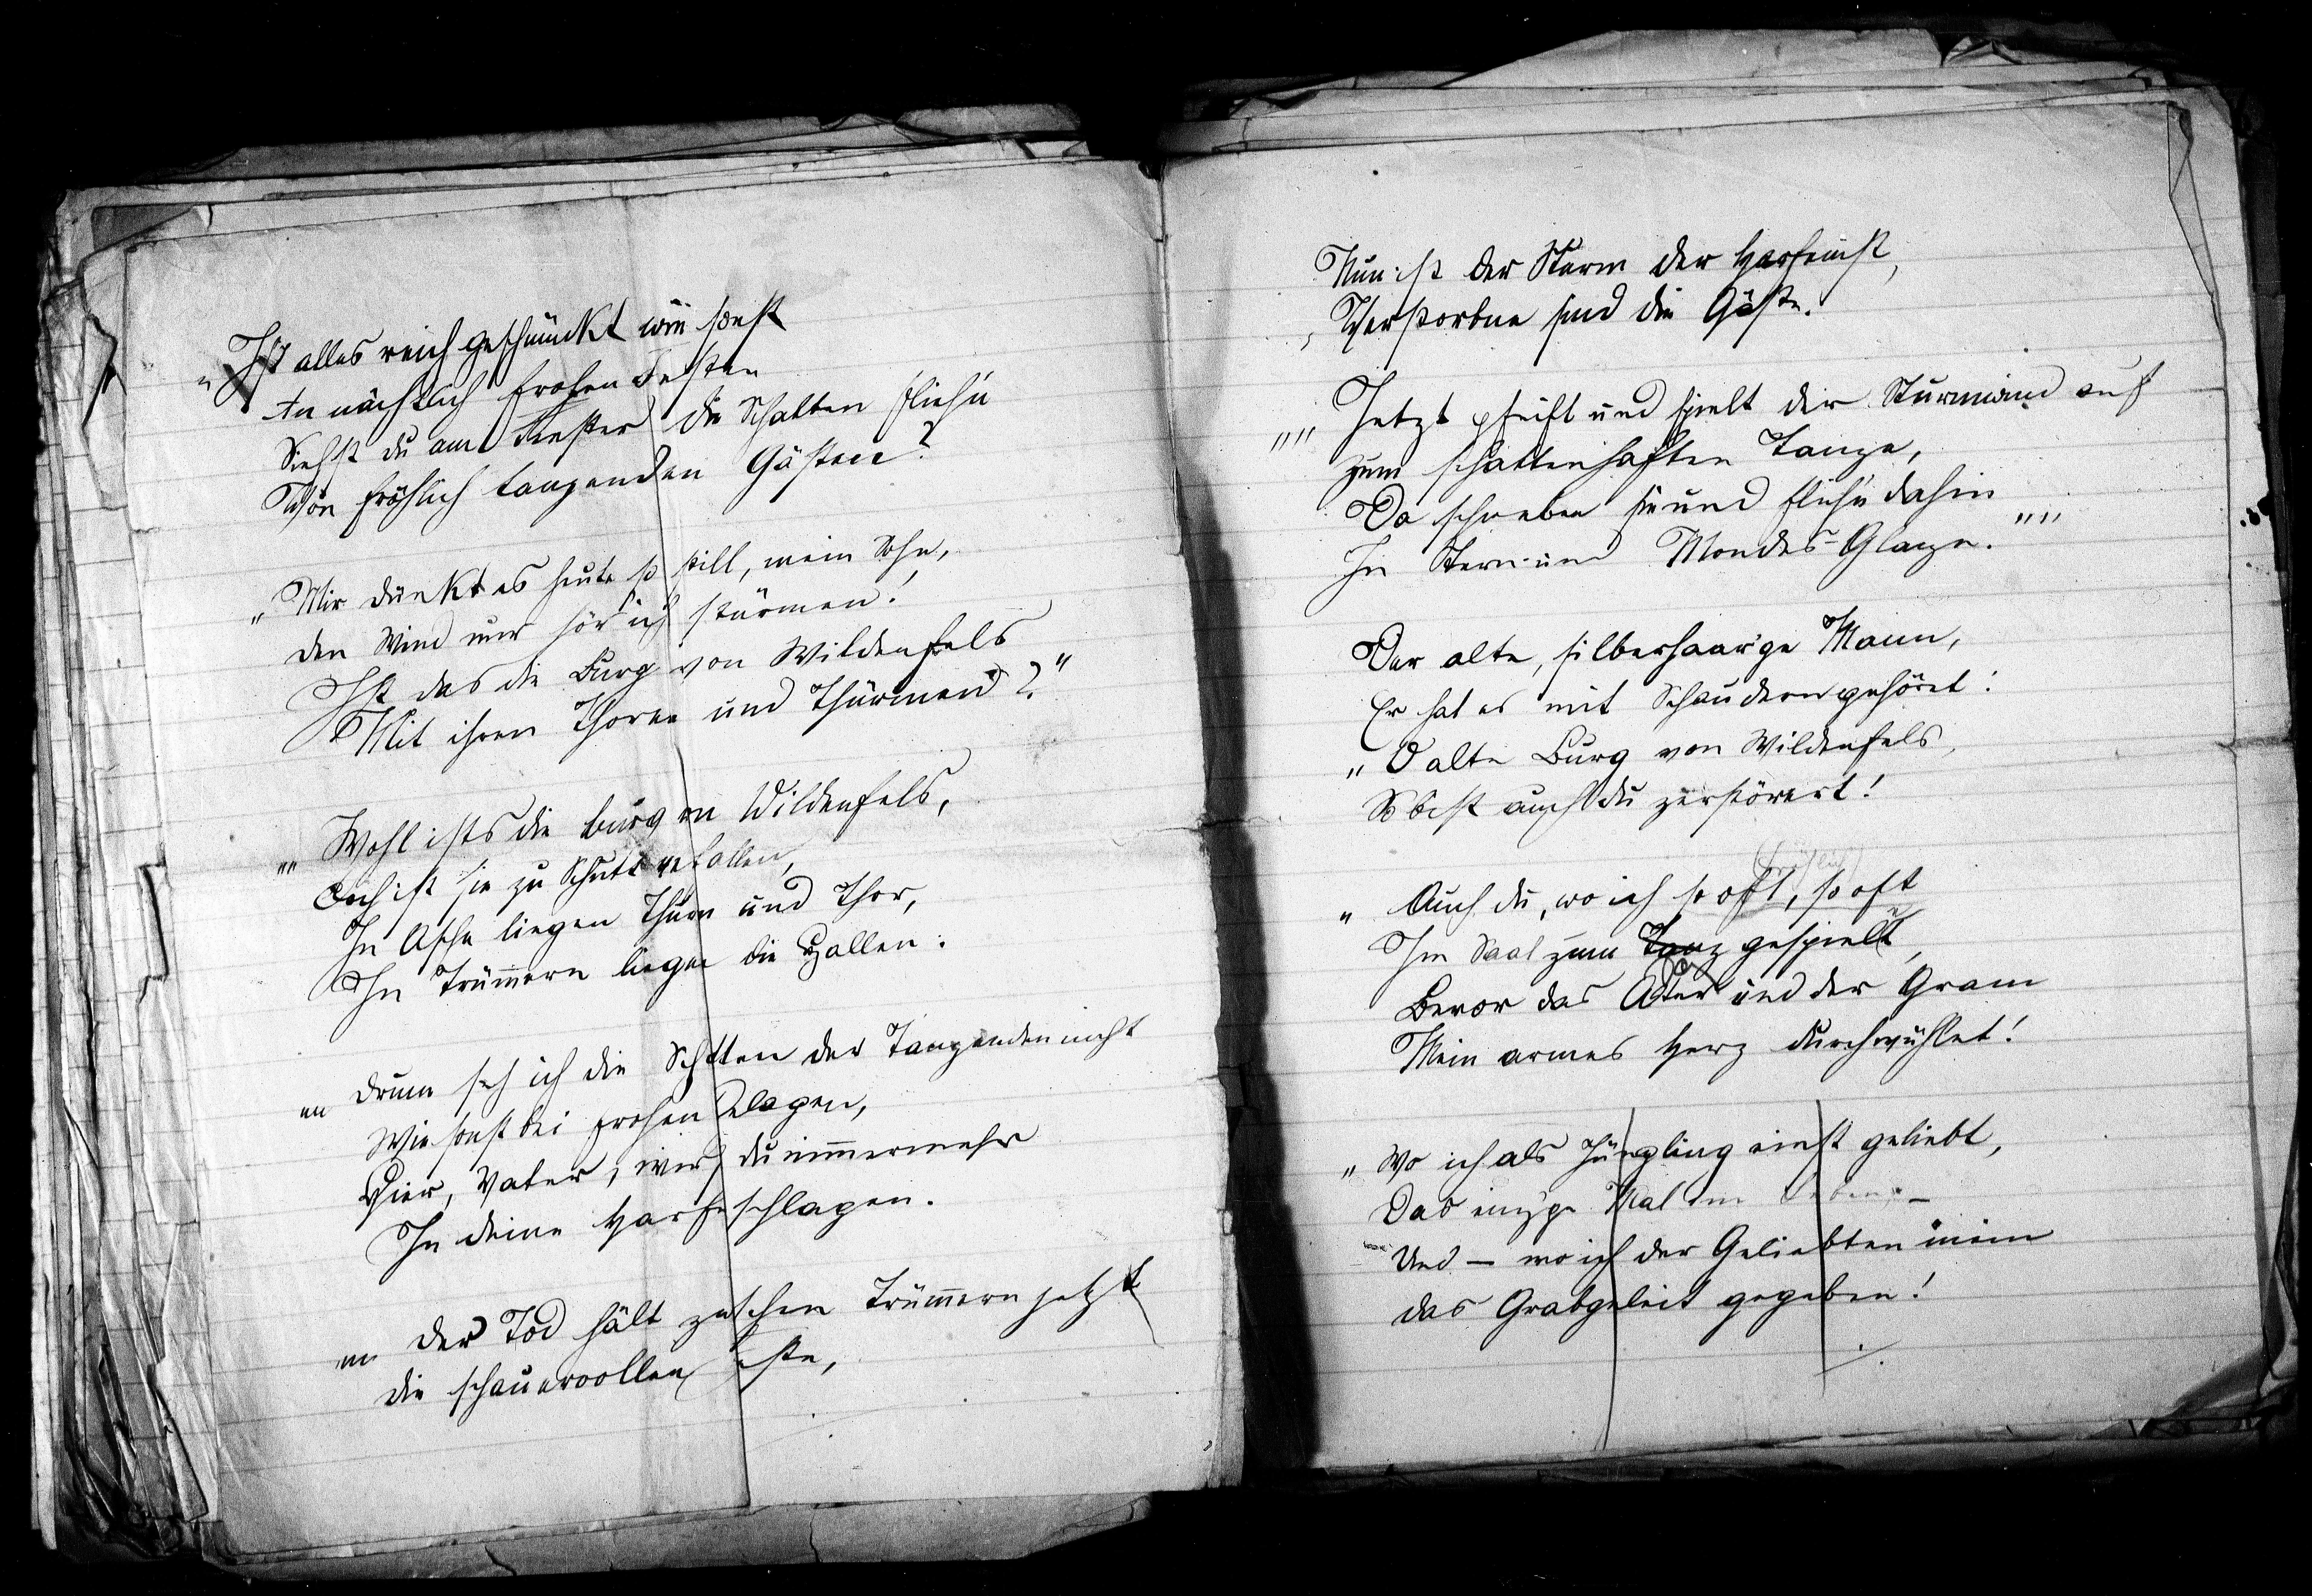 „Ist alles reich geschmückt wie sonst
An nächtlich frohen Festen
Siehst du am Fenster die Schatten flieh'n
Von fröhlich tanzenden Gästen?
„Mir dünkt es heute so still, mein Sohn,
Den Wind nur hör' ich stürmen!
Ist das die Burg von Wildenfels
Mit ihren Thoren und Thürmen?“
„„Wohl ists die Burg von Wildenfels,
Doch ist sie zu Schutt verfallen,
In Asche liegen Thurm und Thor,
In Trümmern liegen die Hallen.
„„Drum seh ich die Schatten der Tanzenden nicht
Wie sonst bei frohen Gelagen,
Hier, Vater, wirst du nimmermehr
In deine Harfe schlagen.
„„Der Tod hält zwischen Trümmern jetzt
Die schauervollen Feste,
Nun ist der Sturm der Harfenist,
Verstorbne sind die Gäste.
„„Jetzt pfeift und spielt der Sturmwind auf
Zum schattenhaften Tanze,
Da schweben sie und flieh'n dahin
In Stern- und Mondes-Glanze.““
Der alte, silberhaar'ge Mann,
Er hat es mit Schaudern gehöret:
„O alte Burg von Wildenfels,
So bist auch du zerstöret!
(fröhlich)
„Auch du, wo ich so oft, so oft
Im Saal zum Tanz gespielet,
Bevor das Alter und der Gram
Mein armes Herz durchwühlet!
„Wo ich als Jüngling einst geliebt,
Das einz'ge Mal im Leben –
Und – wo ich der Geliebten mein
Das Grabgeleit gegeben!